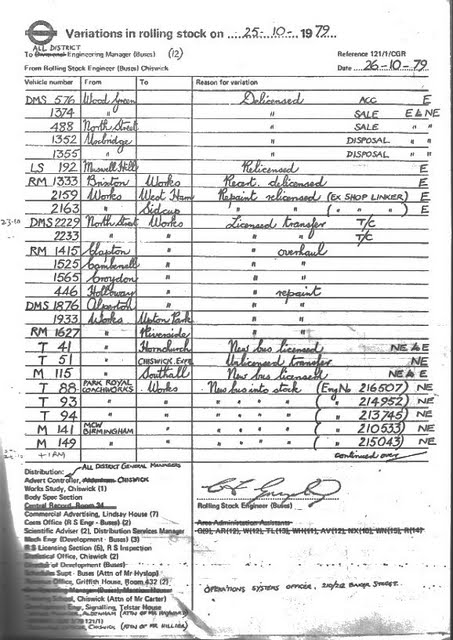 Variations in rolling stock on 25-10-1979
ALL DISTRICT
To Divisional Engineering Manager (Buses) (12)
Reference 121/1/CGR
From Rolling Stock Engineer (Buses) Chiswick
Date 26-10-79
Vehicle number From To Reason for variation
DMS 576 Wood Green Delicensed ACC E
1374 " " SALE E & NE
488 North Street " SALE " "
1352 Uxbridge " DISPOSAL " "
1355 " " DISPOSAL " "
LS 192 Muswell Hill Relicensed E
RM 1333 Brixton Works Recert. delicensed E
2159 Works West Ham Repaint relicensed (EX SHOP LINKER) E
2163 " Sidcup " " ( " " " ) E
DMS 2229 North Street Works Licensed transfer T/C
2233 " " " " T/C
RM 1415 Clapton " " overhaul
1525 Camberwell " " "
1565 Croydon " " "
446 Holloway " " repaint
DMS 1876 Alperton " " "
1933 Works Upton Park " "
RM 1627 " Riverside " "
T 41 " Hornchurch New bus licensed NE & E
T 51 " CHISWICK. EXPL Unlicensed transfer NE
M 115 " Southall New bus licensed NE & E
T 88 PARK ROYAL COACHWORKS Works New bus into stock (Eng No 216507) NE
T 93 " " " " " " ( " " 214952) NE
T 94 " " " " " " ( " " 213745) NE
M 141 MCW BIRMINGHAM " " " " " ( " " 210533) NE
M 149 " " " " " " ( " " 215043) NE
+1AM
continued over
Distribution: ALL DISTRICT GENERAL MANAGERS
Advert Controller, CHISWICK
Works Study, Chiswick (1)
Body Spec Section
Central Record, Room 24
Commercial Advertising, Lindsay House (7)
Costs Office (R S Engr - Buses) (2)
Scientific Adviser (2), Distribution Services Manager
Mech Engr (Development - Buses) (3)
R S Licensing Section (5), R S Inspection
Statistical Office, Chiswick (1)
Director of Development (Buses)
Schedules Supt - Buses (Attn of Mr Hyslop)
Revenue Office, Griffith House, Room 432 (2)
Training School, Chiswick (Attn of Mr Carter)
Development Engr, Signalling, Telstar House
Rolling Stock Engineer (Buses)
Area Administration Assistants
OPERATIONS SYSTEMS OFFICER, 210/212 BAKER STREET.